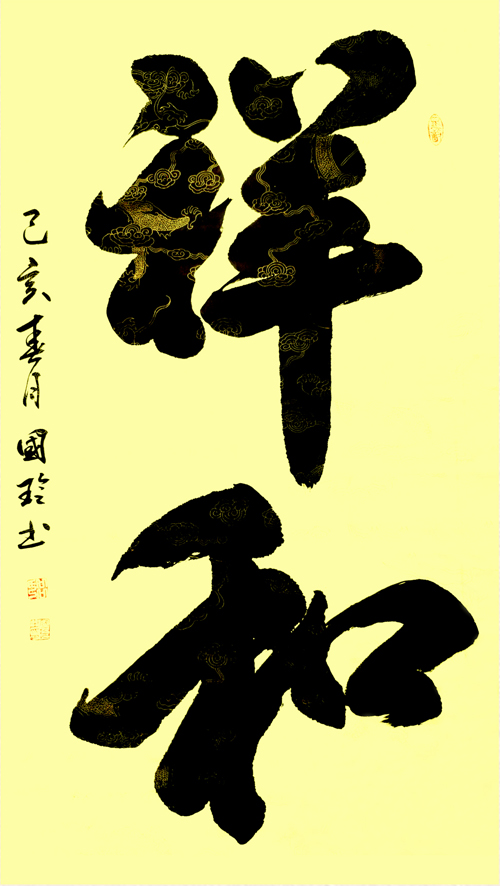 祥和
己亥春月國玲书